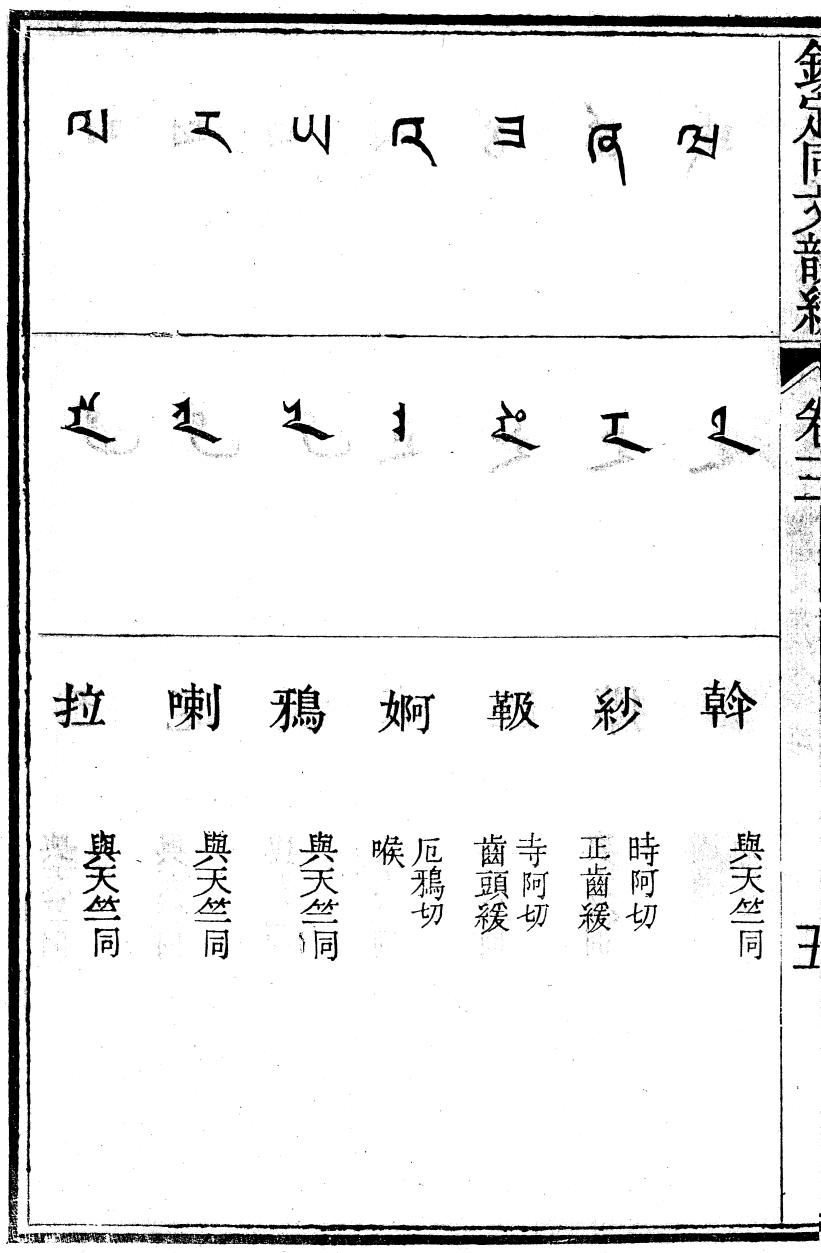 欽定同文韻統
卷三
五
ཝ
斡
與天竺同
ཞ
紗
時阿切
正齒緩
ཟ
靸
寺阿切
齒頭緩
འ
婀
厄鴉切
喉
ཡ
鴉
與天竺同
ར
喇
與天竺同
ལ
拉
與天竺同